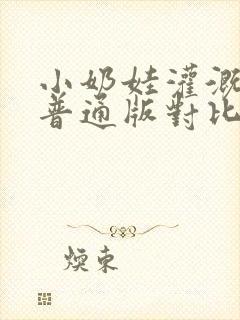 小奶娃灌溉
普通版對比
煐東